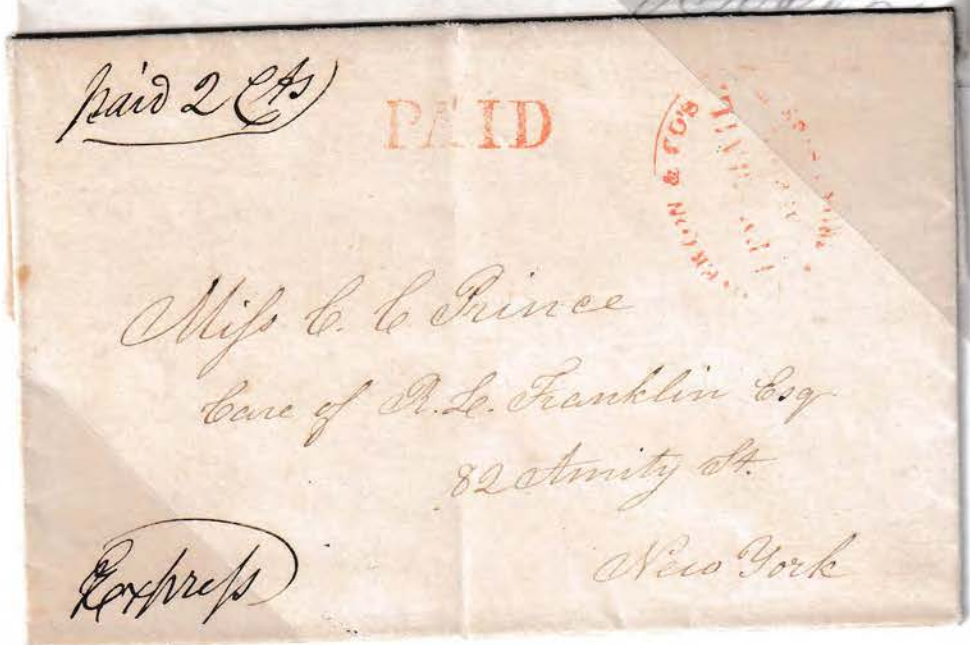 paid 2 Cts
PAID
& CO'S
MAIL
Miſs C. C Prince
Care of R. L. Franklin Esq
82 Amity St.
New York
Expreſs